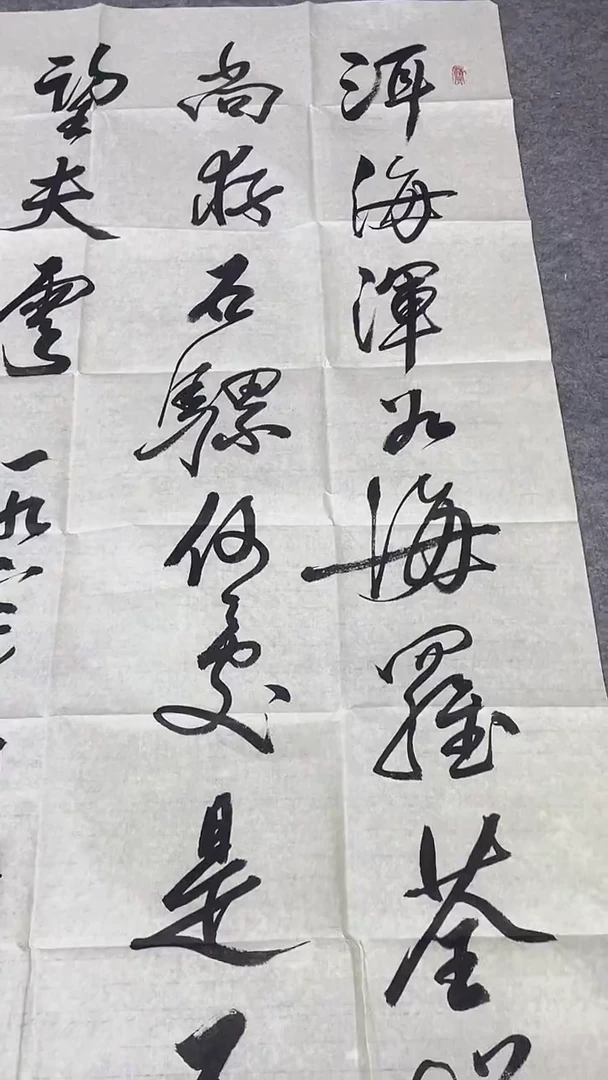 洱海渾如海羅荃
尚存石騾何處是
望夫雲
一九六